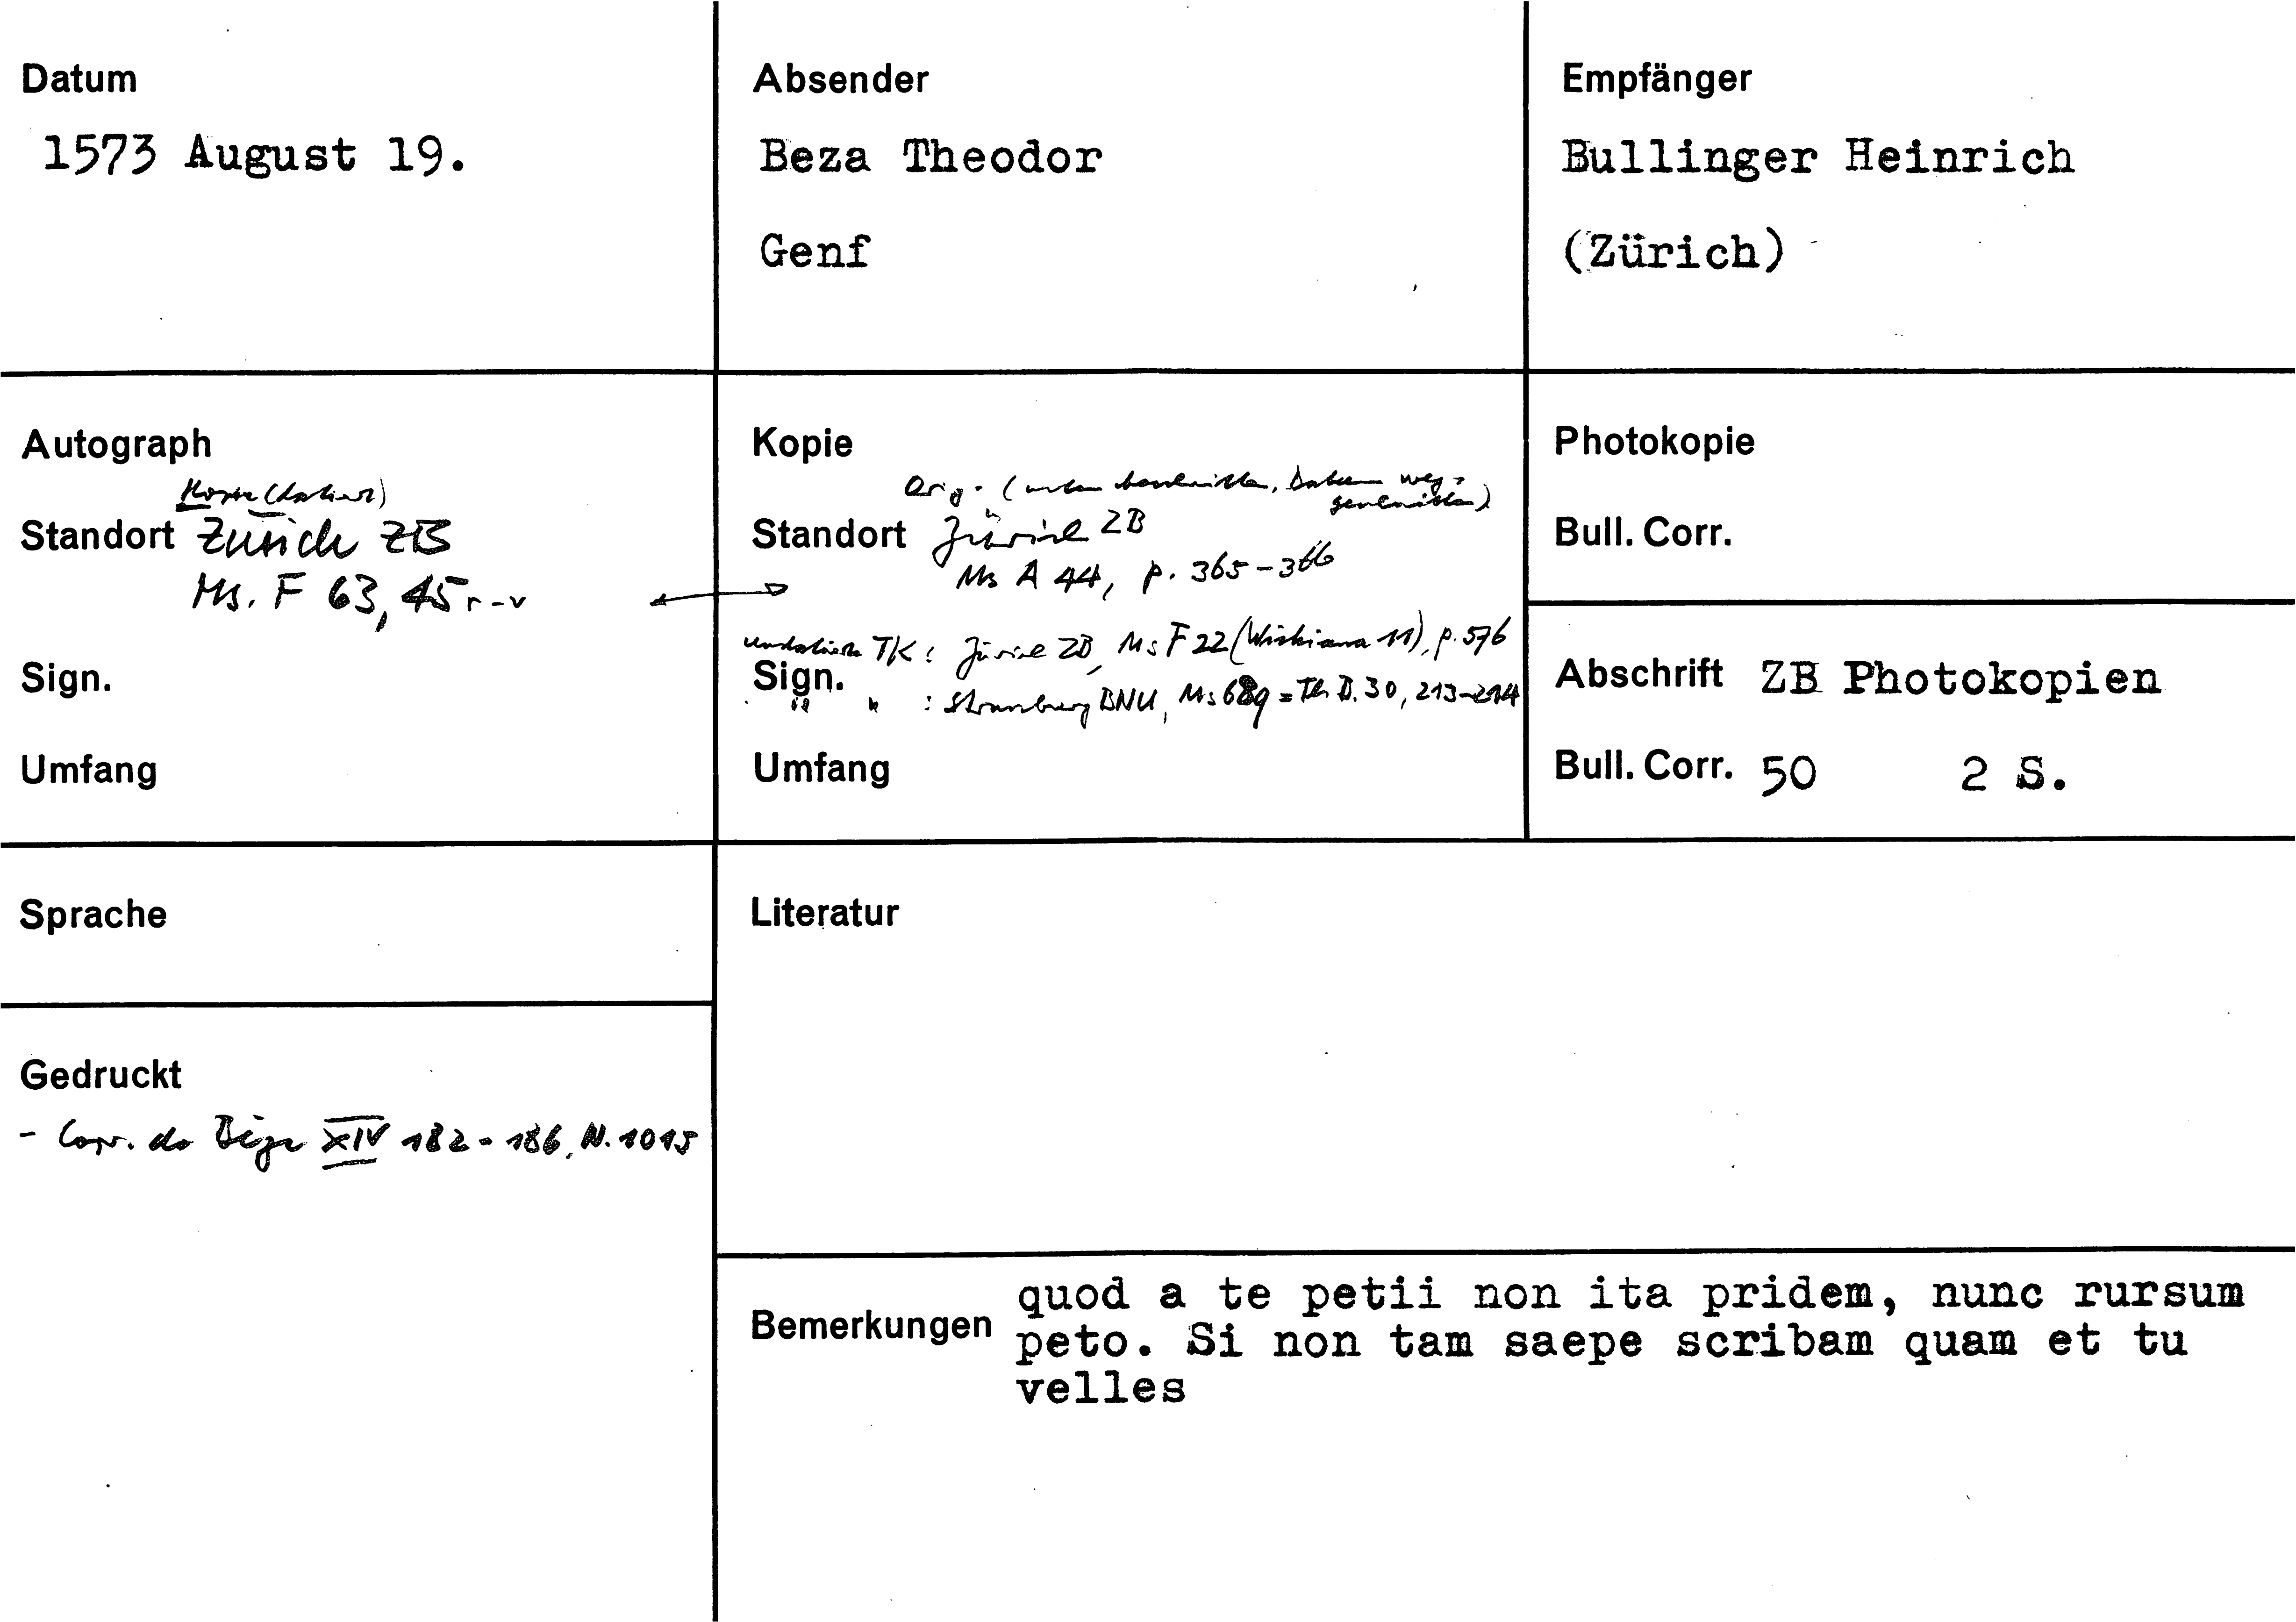 Datum
1573 August 19.
Absender
Beza Theodor
Genf
Empfänger
Bullinger Heinrich
(Zürich)
Autograph
Kopie (datiert)
Standort Zürich ZB
Ms. F 63, 45 r-v
Sign.
Umfang
Kopie
Orig. (unten beschnitten, Datum weg=
geschnitten)
Standort Zürich ZB
Ms A 44, p. 365-366
undatierte TK: Zürich ZB, Ms F 22 (Wickiana 11), p. 576
Sign.
" " : Strassburg BNU, Ms 689 = Th. B. 30, 213-214
Umfang
Photokopie
Bull. Corr.
Abschrift ZB Photokopien
Bull. Corr. 50 2 S.
Sprache
Literatur
Gedruckt
- Corr. de Bèze XIV 182-186, N. 1015
Bemerkungen
quod a te petii non ita pridem, nunc rursum
peto. Si non tam saepe scribam quam et tu
velles